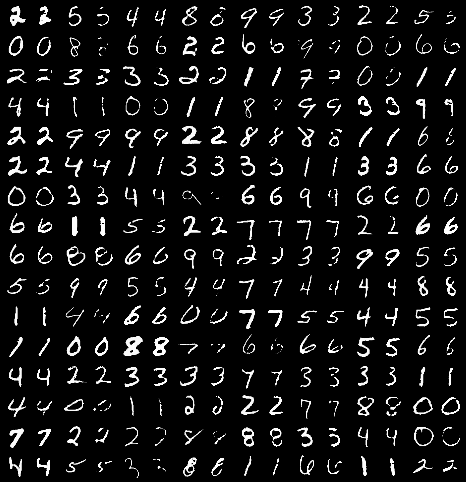 2 2 5 5 4 4 8 8 9 9 3 3 2 2 5 5
0 0 8 8 6 6 2 2 6 6 9 9 0 0 6 6
2 2 3 3 3 3 2 2 1 1 7 7 0 0 1 1
4 4 1 1 0 0 1 1 8 8 9 9 3 3 9 9
2 2 9 9 9 9 2 2 8 8 8 8 1 1 6 6
2 2 4 4 1 1 3 3 3 3 1 1 3 3 6 6
0 0 3 3 4 4 9 6 6 9 9 6 6 0 0
6 6 1 1 5 5 2 2 7 7 7 7 2 2 6 6
6 6 8 8 6 6 9 9 2 2 3 3 9 9 5 5
5 5 9 9 5 5 4 4 7 7 4 4 4 4 8 8
1 1 4 4 6 6 0 0 7 7 5 5 4 4 5 5
1 1 0 0 8 8 7 7 6 6 6 6 5 5 6 6
4 4 2 2 3 3 3 3 7 7 3 3 3 3 1 1
4 4 0 0 1 1 2 2 2 2 7 7 8 8 0 0
7 7 2 2 2 2 8 8 8 8 3 3 4 4 0 0
4 4 5 5 3 3 8 8 1 1 6 6 1 1 2 2